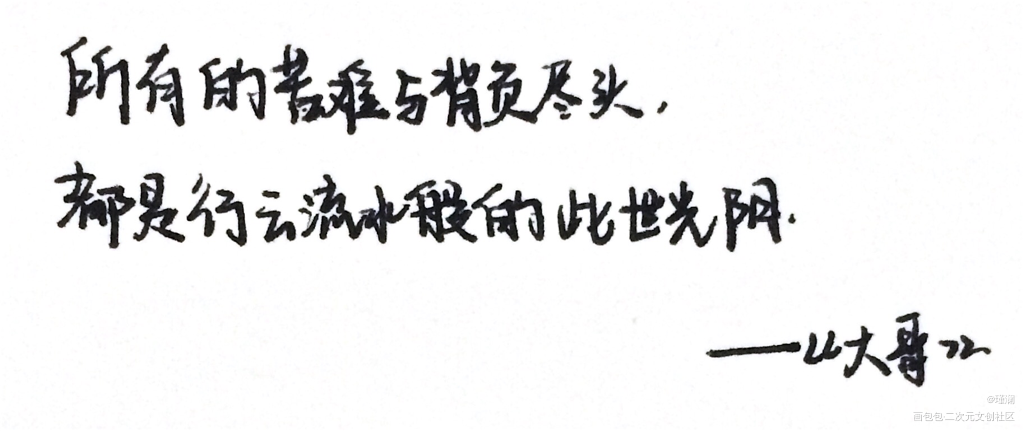 所有的苦难与背负尽头，
都是行云流水般的此世光阴.
——《大哥》
@瑾澜
画包包·二次元文创社区